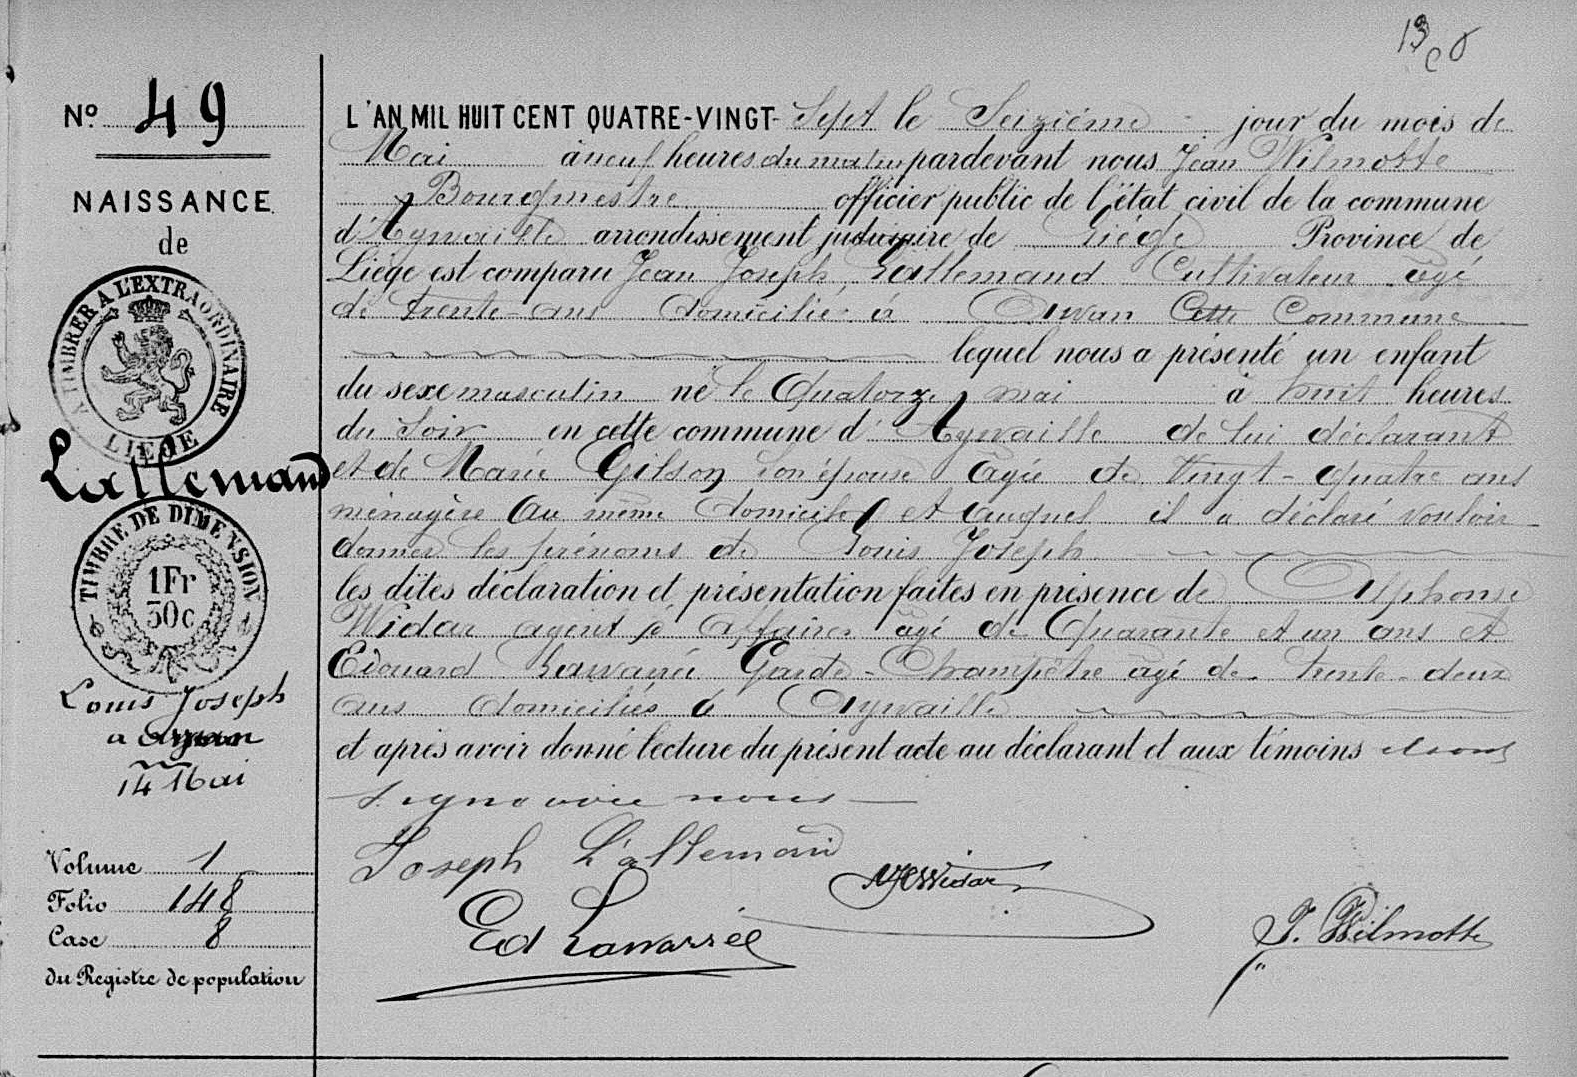 N.º 49
NAISSANCE
de
A TIMBRER A L'EXTRAORDINAIRE
LIEGE
Lallemand
TIMBRE DE DIMENSION
1Fr
30c
Louis Joseph
a
14 Mai
Volume 1
Folio 148
Case 8
du Registre de population
L'AN MIL HUIT CENT QUATRE-VINGT- Sept le Seizième jour du mois de
Mai à neuf heures du matin pardevant nous Jean Wilmotte
Bourgmestre officier public de l'état civil de la commune
d'Aywaille arrondissement judiciaire de Liége Province de
Liége est comparu Jean Joseph Lallemand Cultivateur agé
de trente ans domicilié à Awan Cette Commune
lequel nous a présenté un enfant
du sexe masculin né le Quatorze mai à huit heures
du Soir en cette commune d'Aywaille de lui déclarant
et de Marie Gilson son épouse agée de Vingt-quatre ans
ménagère au même domicile et auquel il a déclaré vouloir
donner les prénoms de Louis Joseph
les dites déclaration et présentation faites en présence de Alphonse
Widar agent d'affaires agé de Quarante et un ans et
Edouard Lawarrée Garde-Champêtre agé de trente-deux
ans domiciliés à Aywaille
et après avoir donné lecture du présent acte au déclarant et aux témoins ils ont
signé avec nous
Joseph Lallemand
Widar
Ed Lawarrée
J. Wilmotte